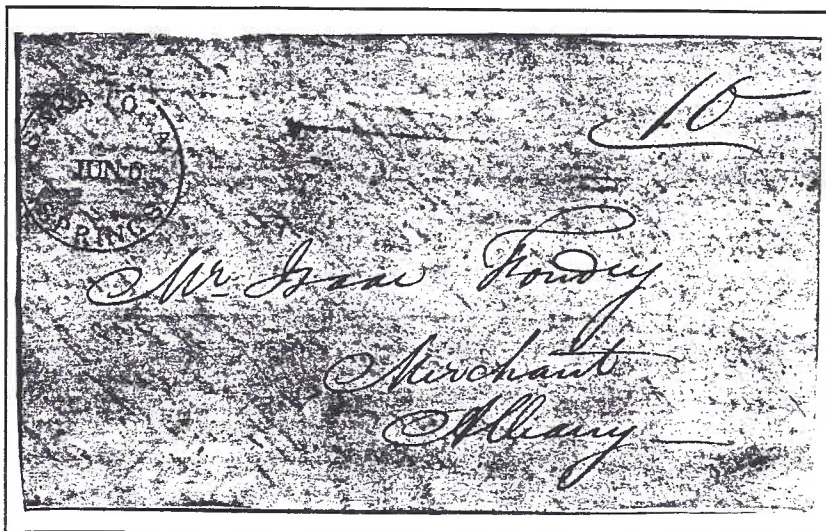 SARATOGA
JUN 6
SPRINGS
10
Mr. Isaac Fondey
Merchant
Albany